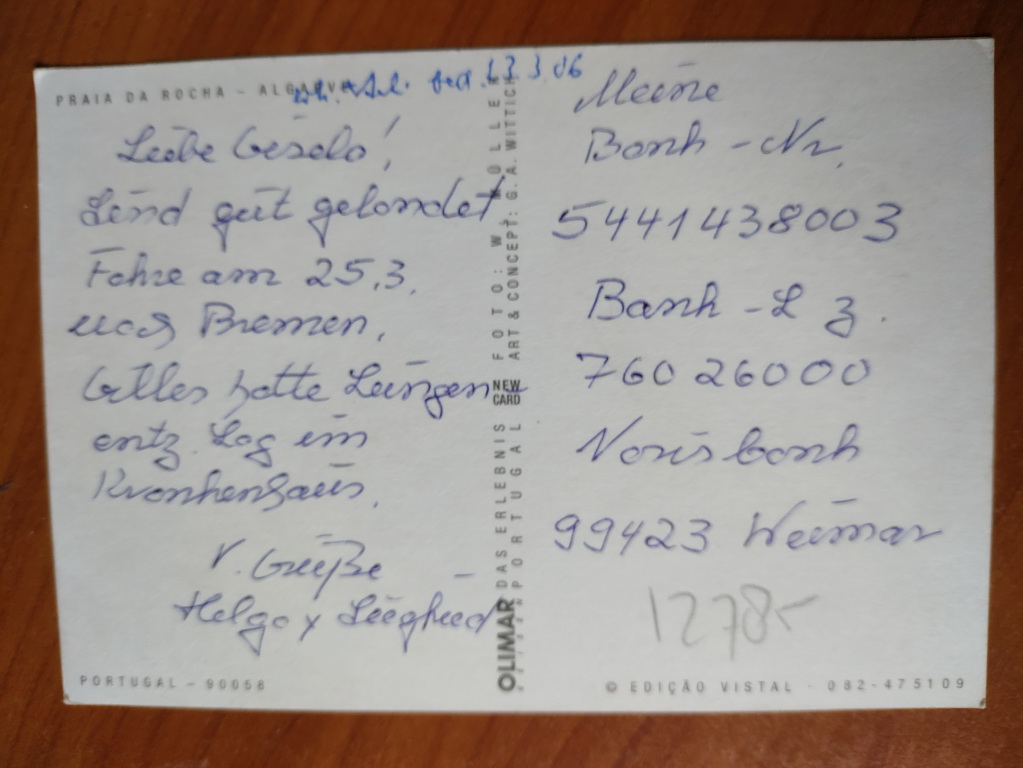 PRAIA DA ROCHA - ALGARVE
13.3.06
Liebe Gisela!
Sind gut gelandet
Fahre am 25.3.
nach Bremen.
Gilles hatte Lungen
entz. Lag im
Krankenhaus.
V. Grüße
Helga + Siegfried
PORTUGAL - 90058
OLIMAR DAS ERLEBNIS NEW CARD FOTO: W. WOLLER
PORTUGAL ART & CONCEPT: G. A. WITTICH
Meine
Bank-Nr.
5441438003
Bank-Lz.
76026000
Norisbank
99423 Weimar
1278-
© EDIÇÃO VISTAL - 082-475109